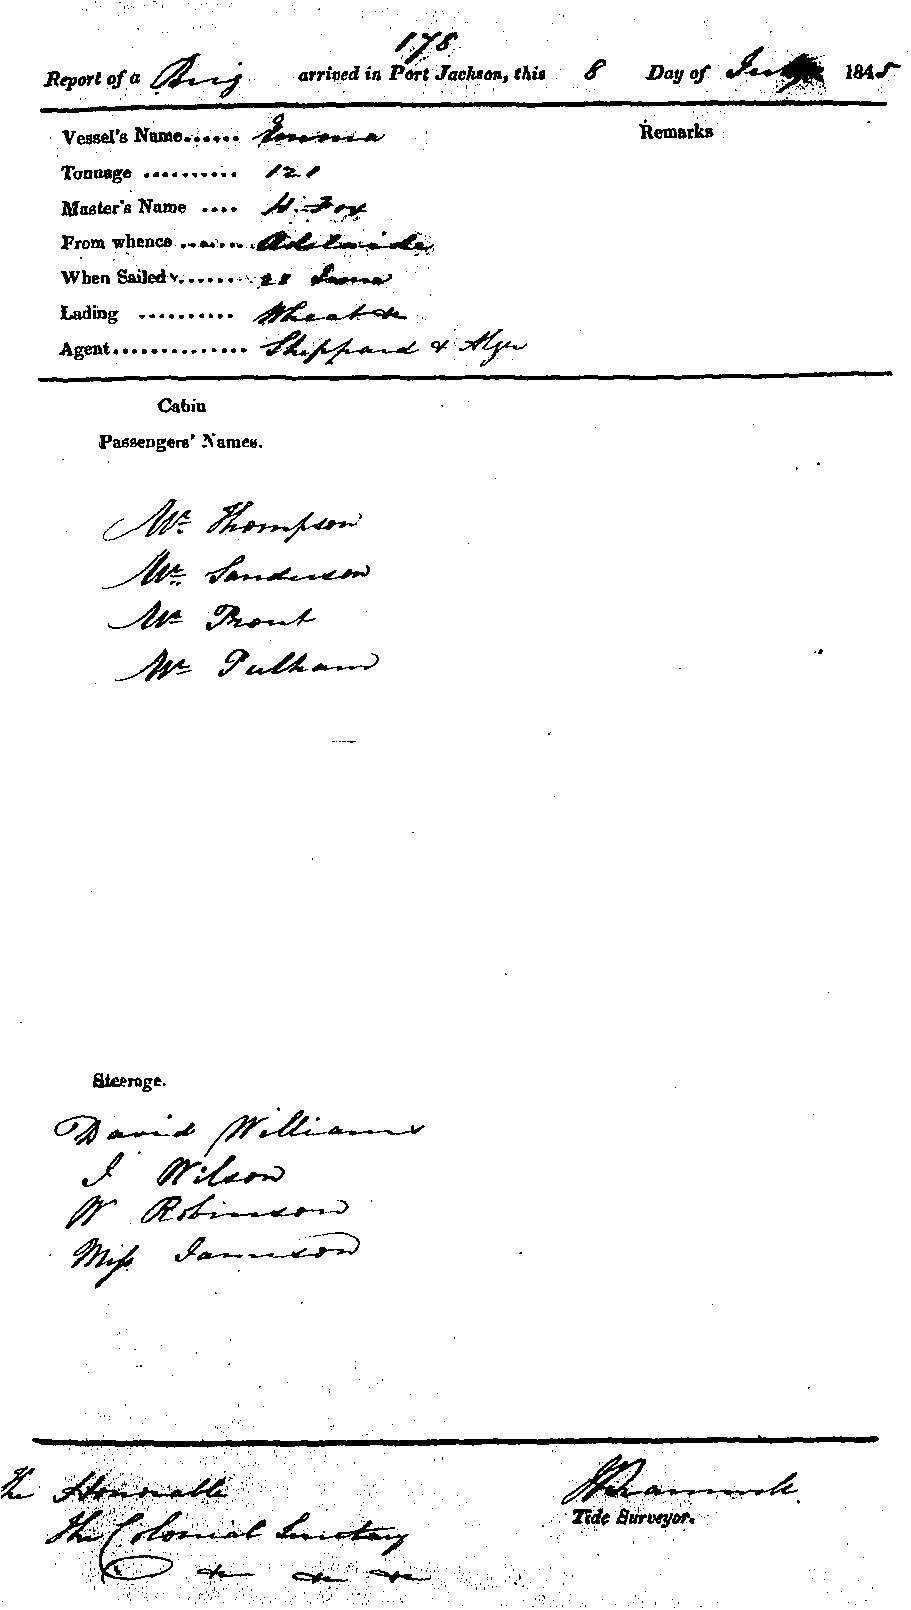 178
Report of a Brig arrived in Port Jackson, this 8 Day of July 1845
Vessel's Name...... Emma
Remarks
Tonnage .......... 121
Master's Name .... H. Fox
From whence ....... Adelaide
When Sailed ....... 28 June
Lading .......... Wheat &c
Agent.............. Sheppard & Alger
Cabin
Passengers' Names.
Mr Thompson
Mr Sanderson
Mr Prout
Mr Pulham
Steerage.
David Williams
J Wilson
W Robinson
Miss Jameson
The Honorable
The Colonial Secretary
&c &c &c
Tide Surveyor.